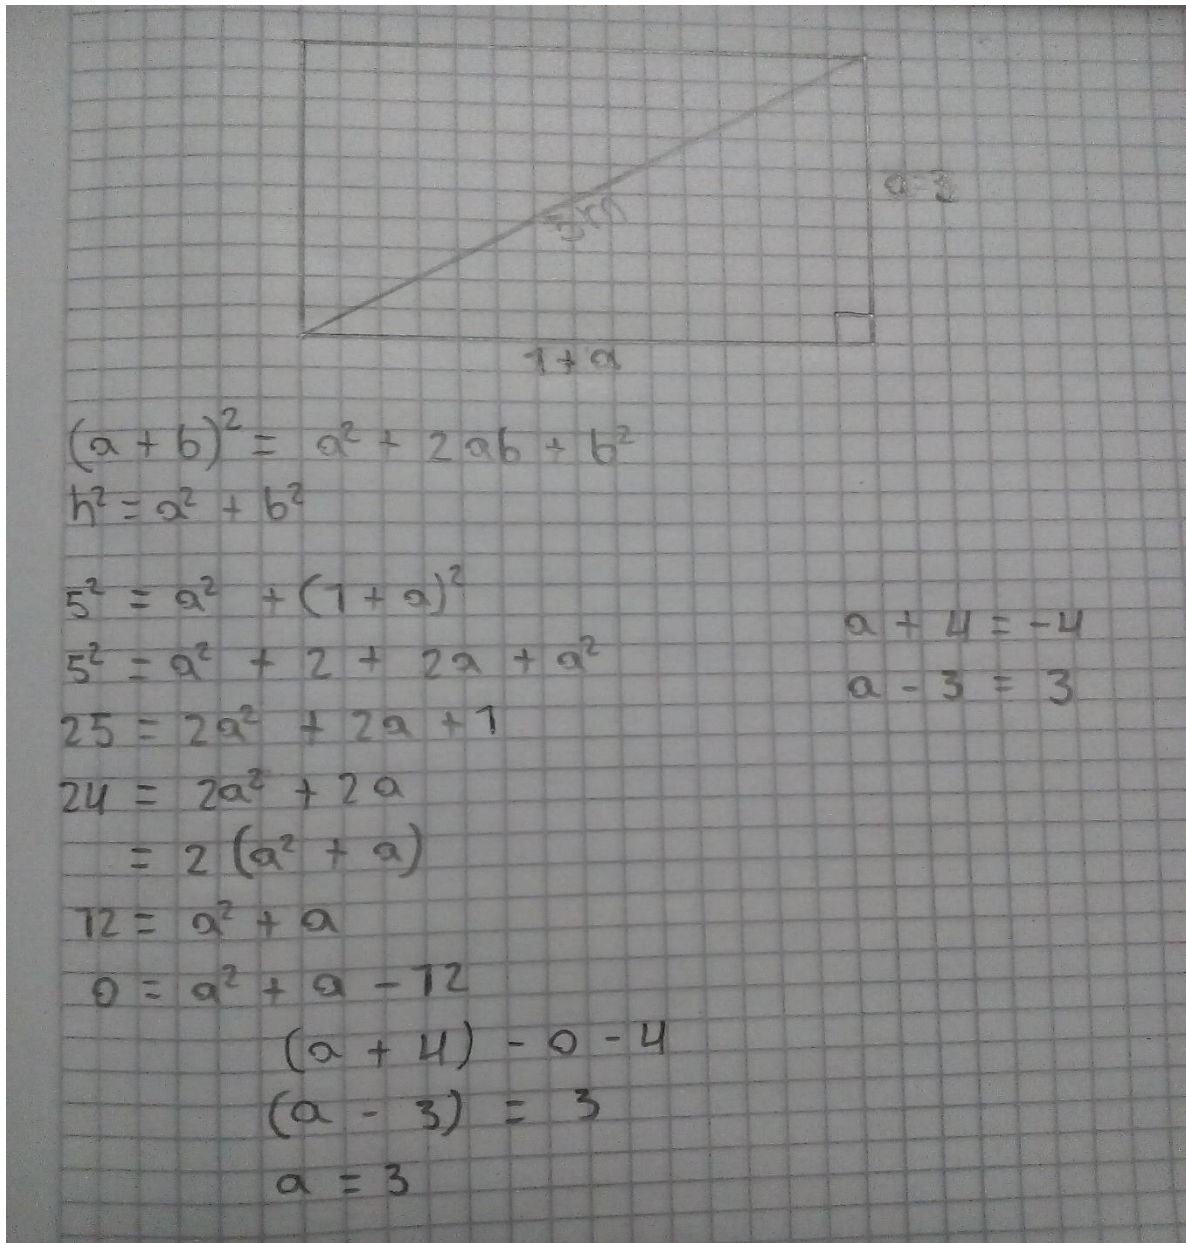 1 + a
(a + b)² = a² + 2ab + b²
h² = a² + b²
5² = a² + (1 + a)²
5² = a² + 2 + 2a + a²
25 = 2a² + 2a + 1
24 = 2a² + 2a
= 2 (a² + a)
12 = a² + a
0 = a² + a - 12
(a + 4) - 0 - 4
(a - 3) = 3
a = 3
a + 4 = -4
a - 3 = 3